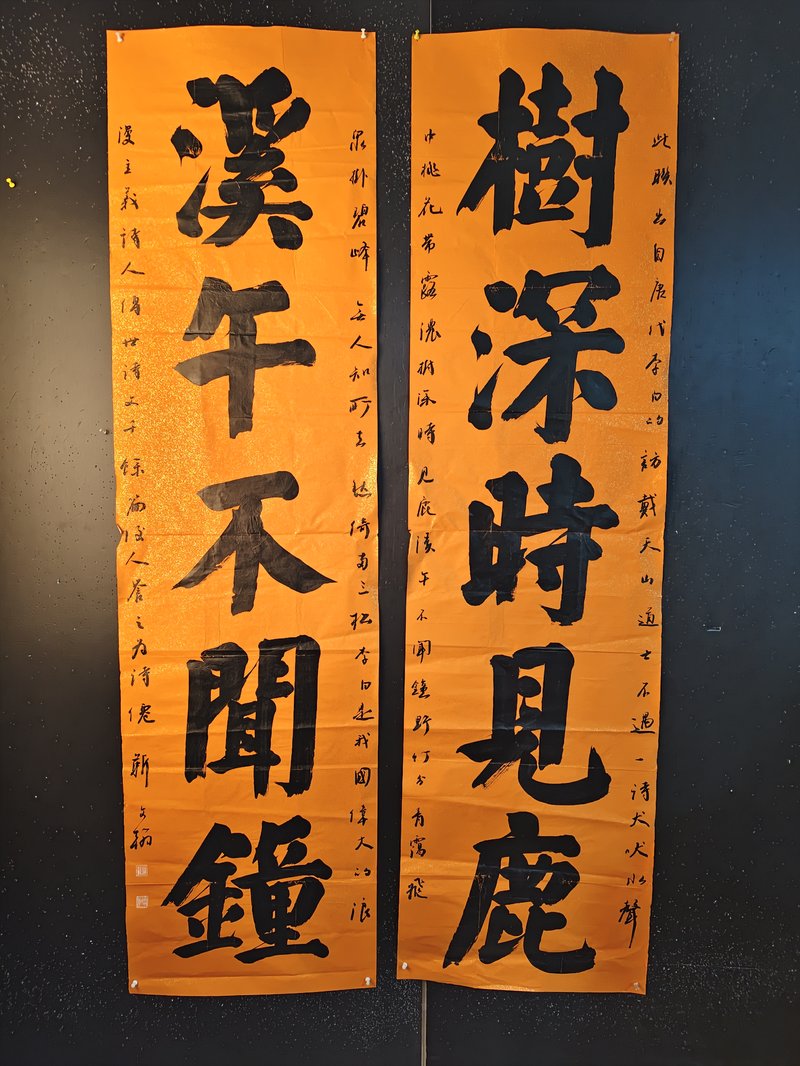 此聯出自唐代李白的訪戴天山道士不遇一诗犬吠水聲
樹深時見鹿
中桃花带露濃樹深時見鹿溪午不聞鐘野竹分青靄飛
泉掛碧峰无人知所去愁倚两三松李白是我國偉大的浪
溪午不聞鐘
漫主義诗人傳世诗文千餘篇後人誉之为诗僊 靳